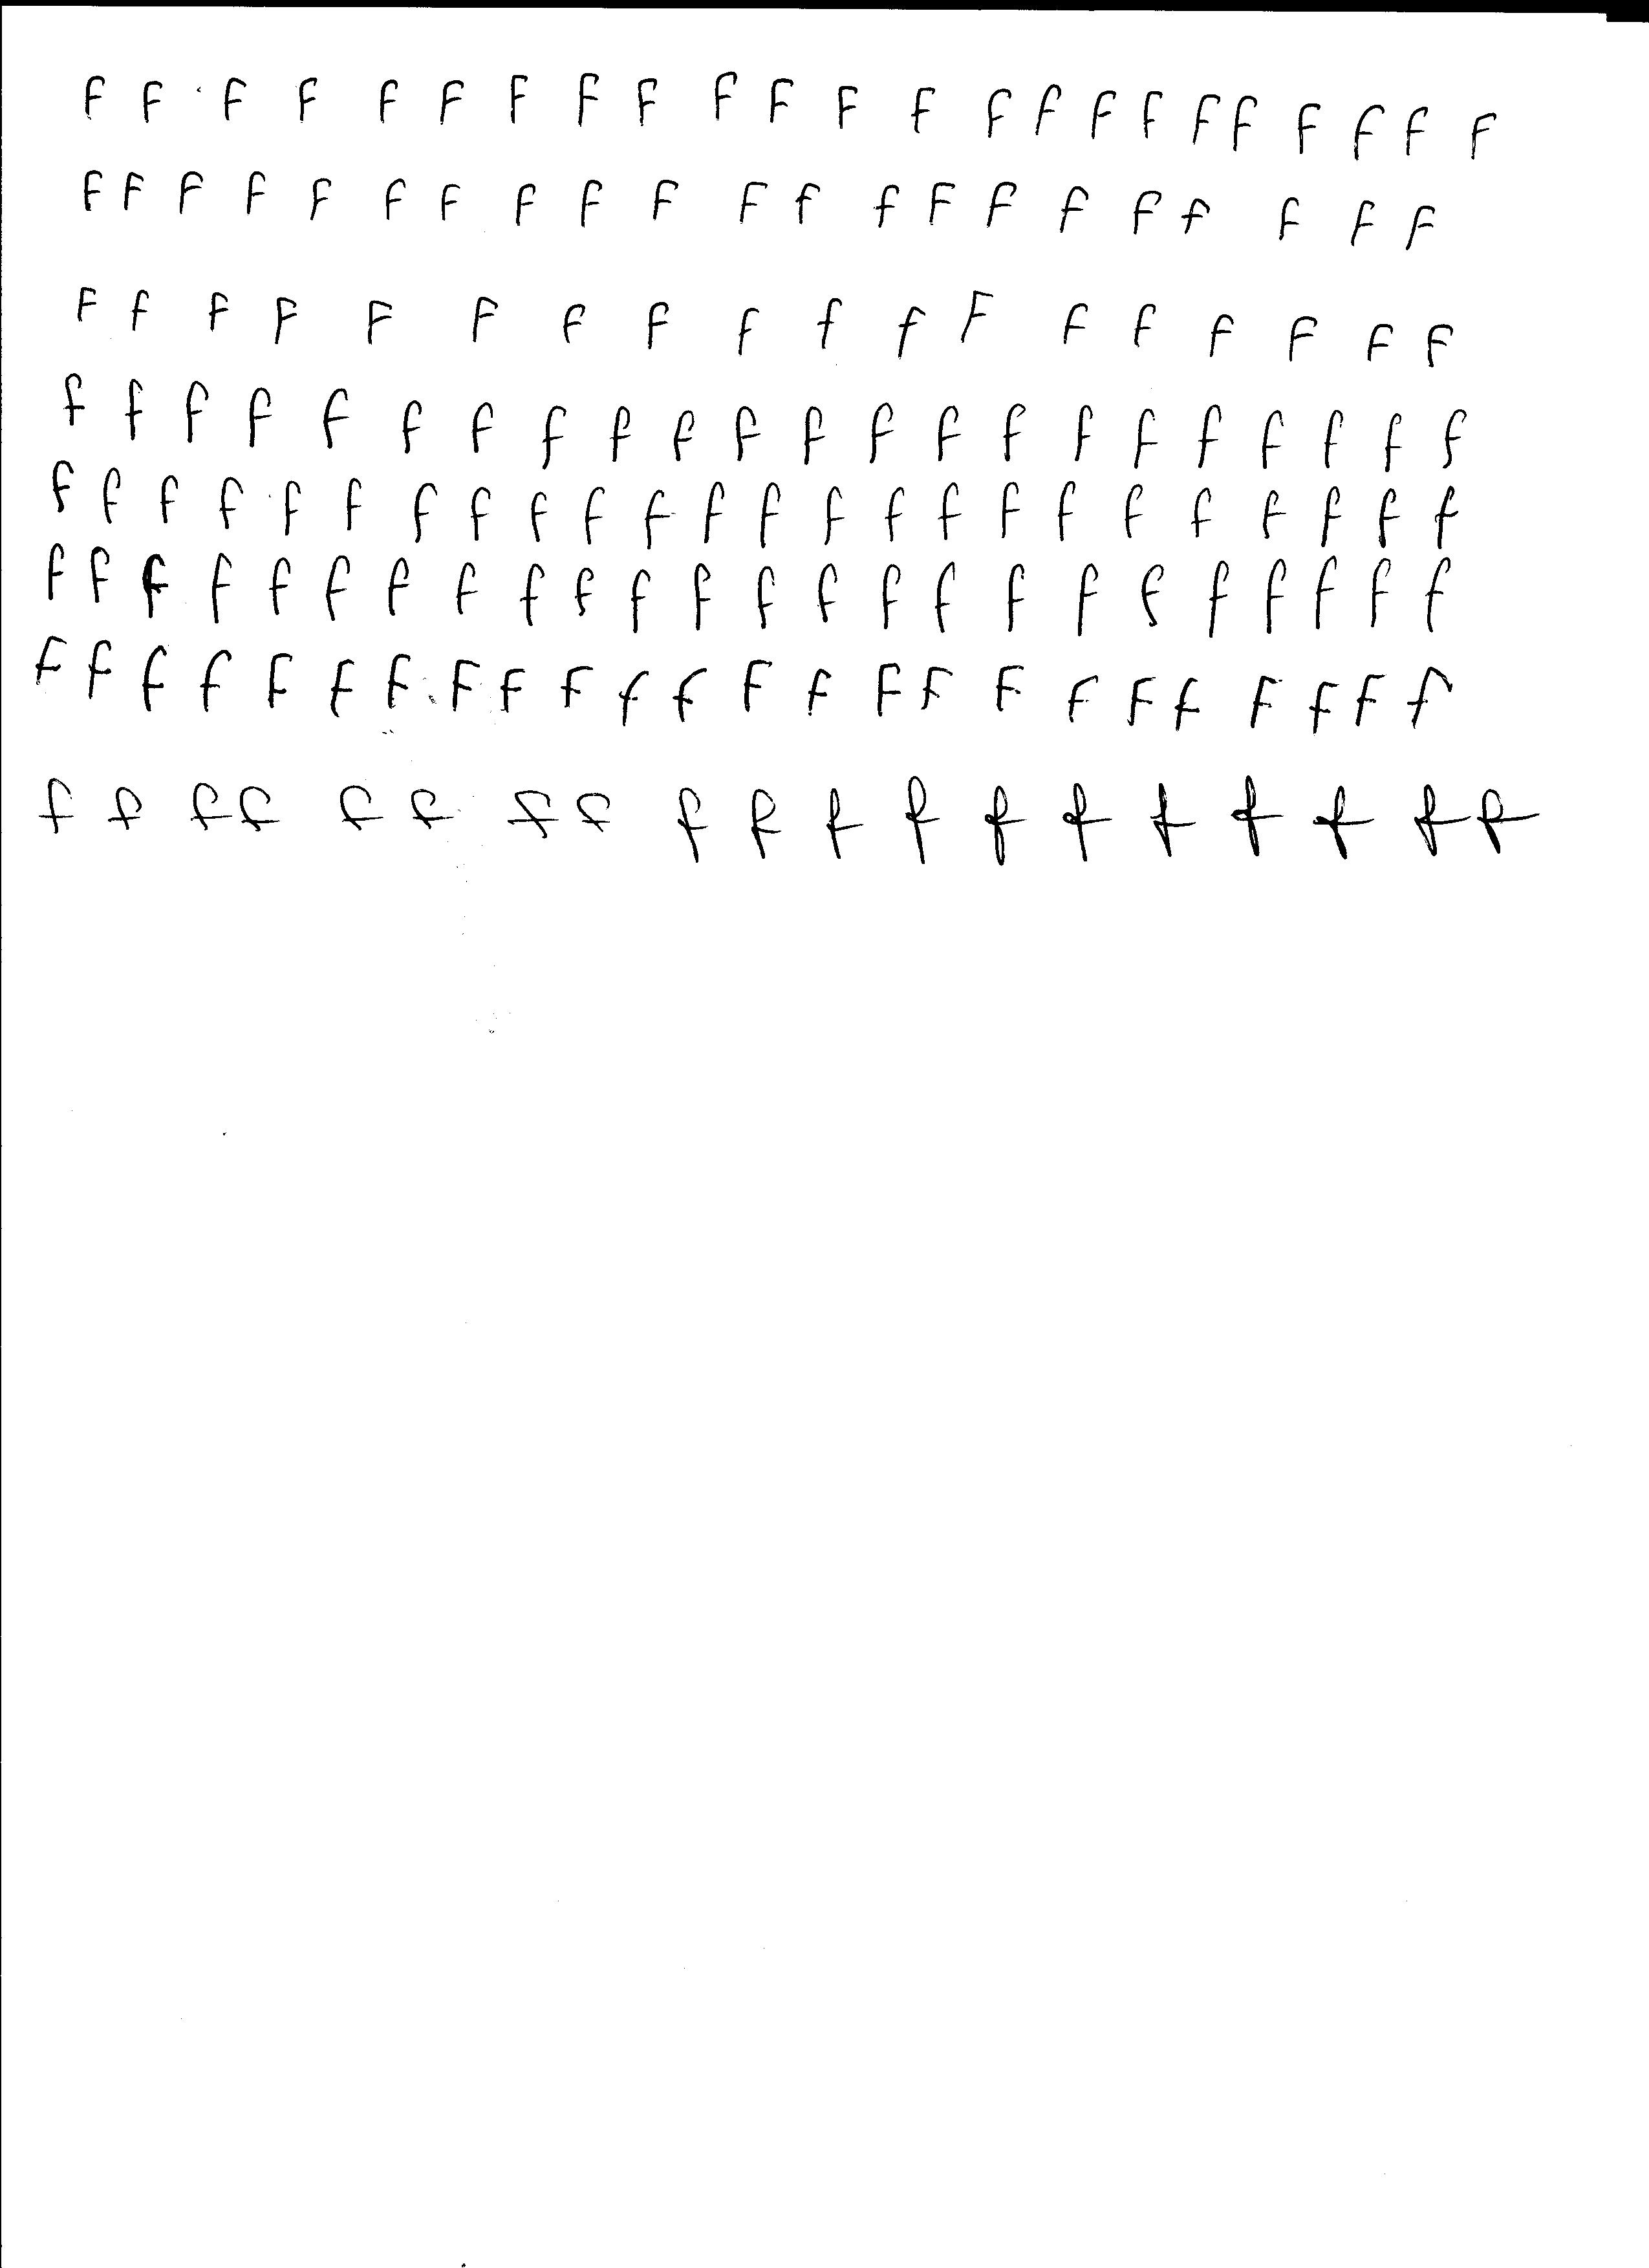 F F F F F F F F F F F F F F f F F F F F F F F
F F F F F F F F F F F f f F F f F f F F F
F f F F F F f F f f f F F F F F F F
f f f f f f f f f f f f f f f f f f f f f f
f f f f f f f f f f f f f f f f f f f f f f f f
f f f f f f f f f f f f f f f f f f f f f f f f
F f f f F f f F F F f f F f F F F F F f F f F f
f f f f f f f f f f f f f f f f f f f